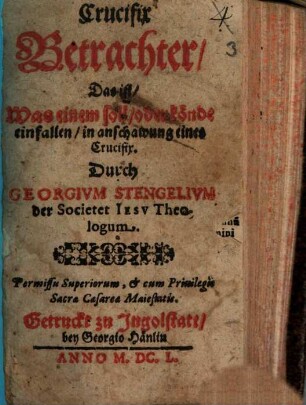 Crucifix
3
Betrachter/
Das ist/
Was einem soll/ oder könde
einfallen/ in anschawung eines
Crucifix.
Durch
GEORGIVM STENGELIVM
der Societet IESV Theo-
logum.
Permissu Superiorum, & cum Priuilegio
Sacra Cæsarea Maiestatis.
Getruckt zu Ingolstatt/
bey Georgio Hänlin
ANNO M. DC. L.